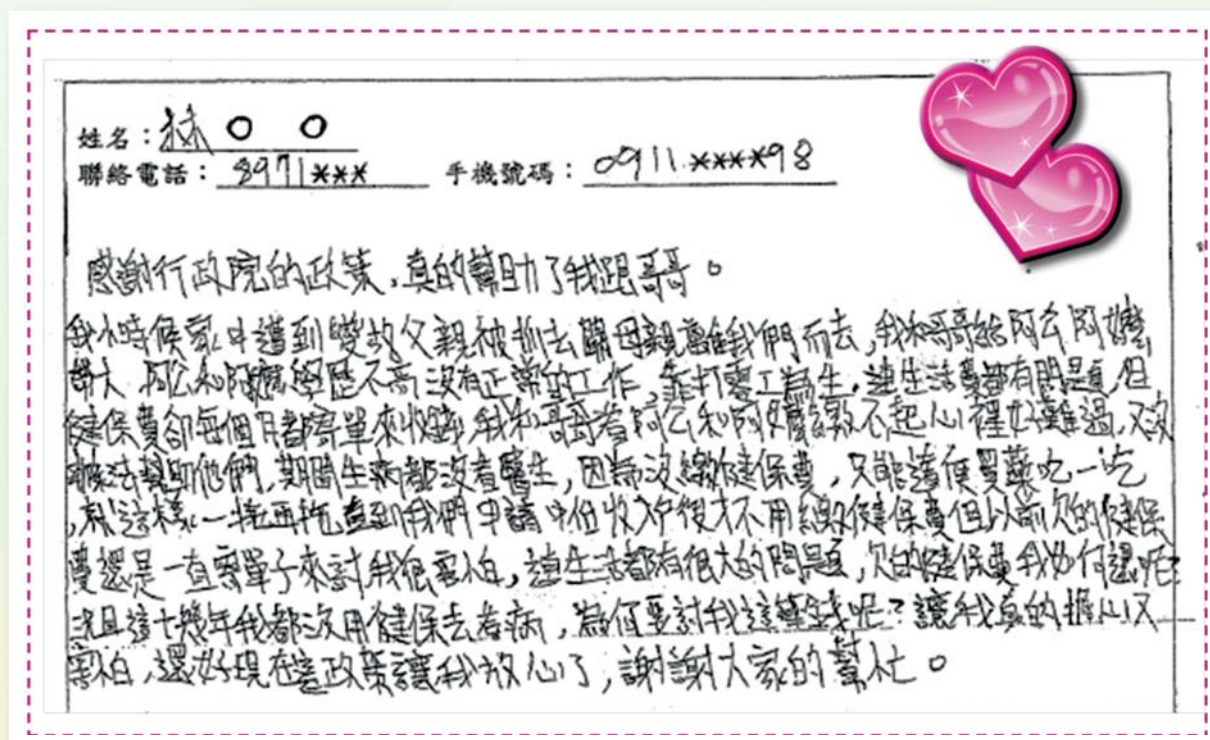 姓名：林〇 〇
聯絡電話：8971*** 手機號碼：0911.****98
感謝行政院的政策，真的幫助了我跟哥哥。
我小時候家中遭到變故父親被抓去關母親離我們而去，我和哥哥給阿公阿嬤
帶大 阿公和阿嬤學歷不高沒有正常的工作，靠打零工為生，連生活費都有問題，但
健保費卻每個月都寄單來收錢，我和哥哥看阿公和阿嬤繳不起心裡好難過，又沒
辦法幫助他們，期間生病都沒看醫生，因為沒繳健保費，只能隨便買藥吃一吃
，就這樣一拖再拖直到我們申請中低收入戶後才不用繳健保費但以前欠的健保
費還是一直寄單子來討我很害怕，連生活都有很大的問題，欠的健保費我如何還呢?
況且這十幾年我都沒用健保去看病，為何要討我這筆錢呢?讓我真的擔心又
害怕，還好現在這政策讓我放心了，謝謝大家的幫忙。